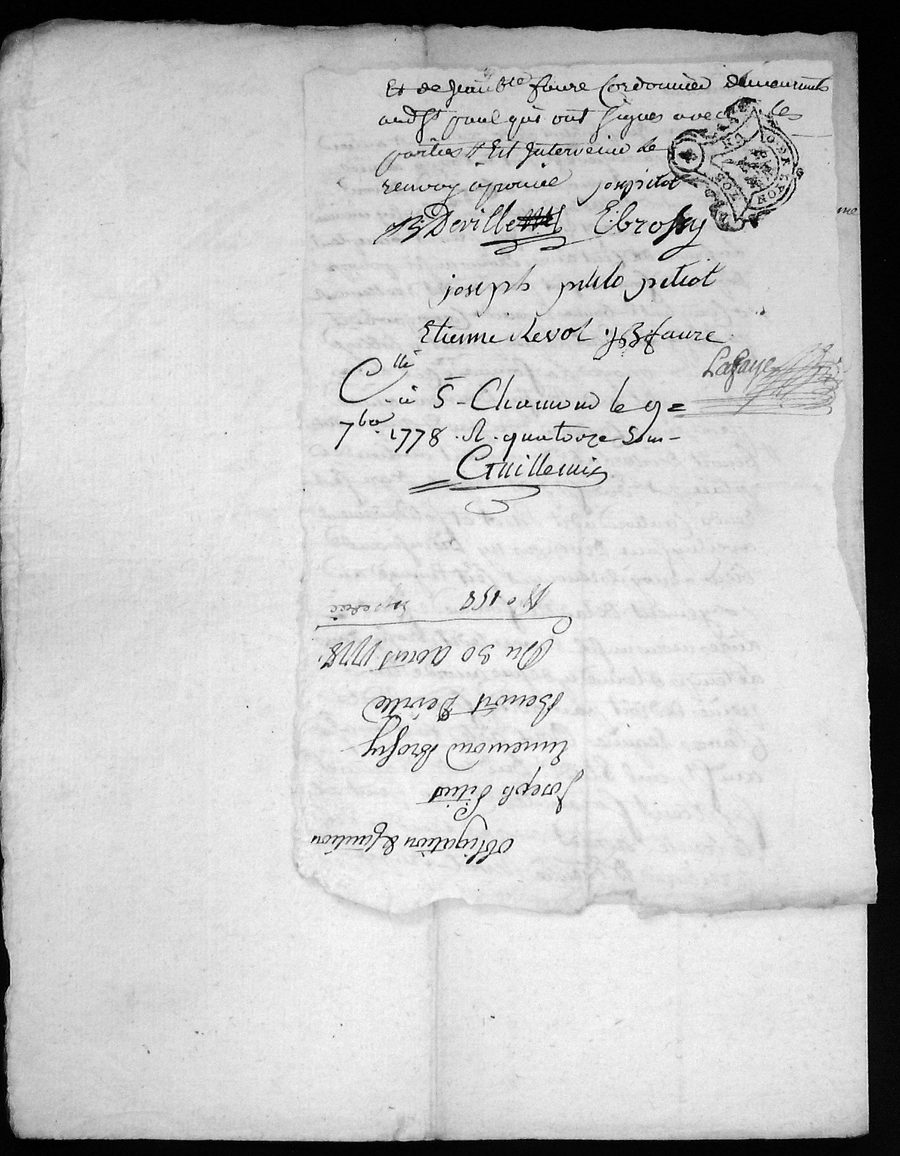 Et de jean bte faure Cordonnier demeurants
audt st paul qui ont signes avec les
parties Est Interveiue de
renvoy aprouvé joseph pitiot
B Deville Ebrossy
joseph petiot
Etienne chevol JB faure
Lafaye
C llé
à St Chamond le 9=
7bre 1778 . R. quatorze sous
Guillemin
No 158 Expediée
Du 30 aoust 1778
Benoit Deville
Ennemond Brossy
Joseph Pitiot
Obligation & Caution